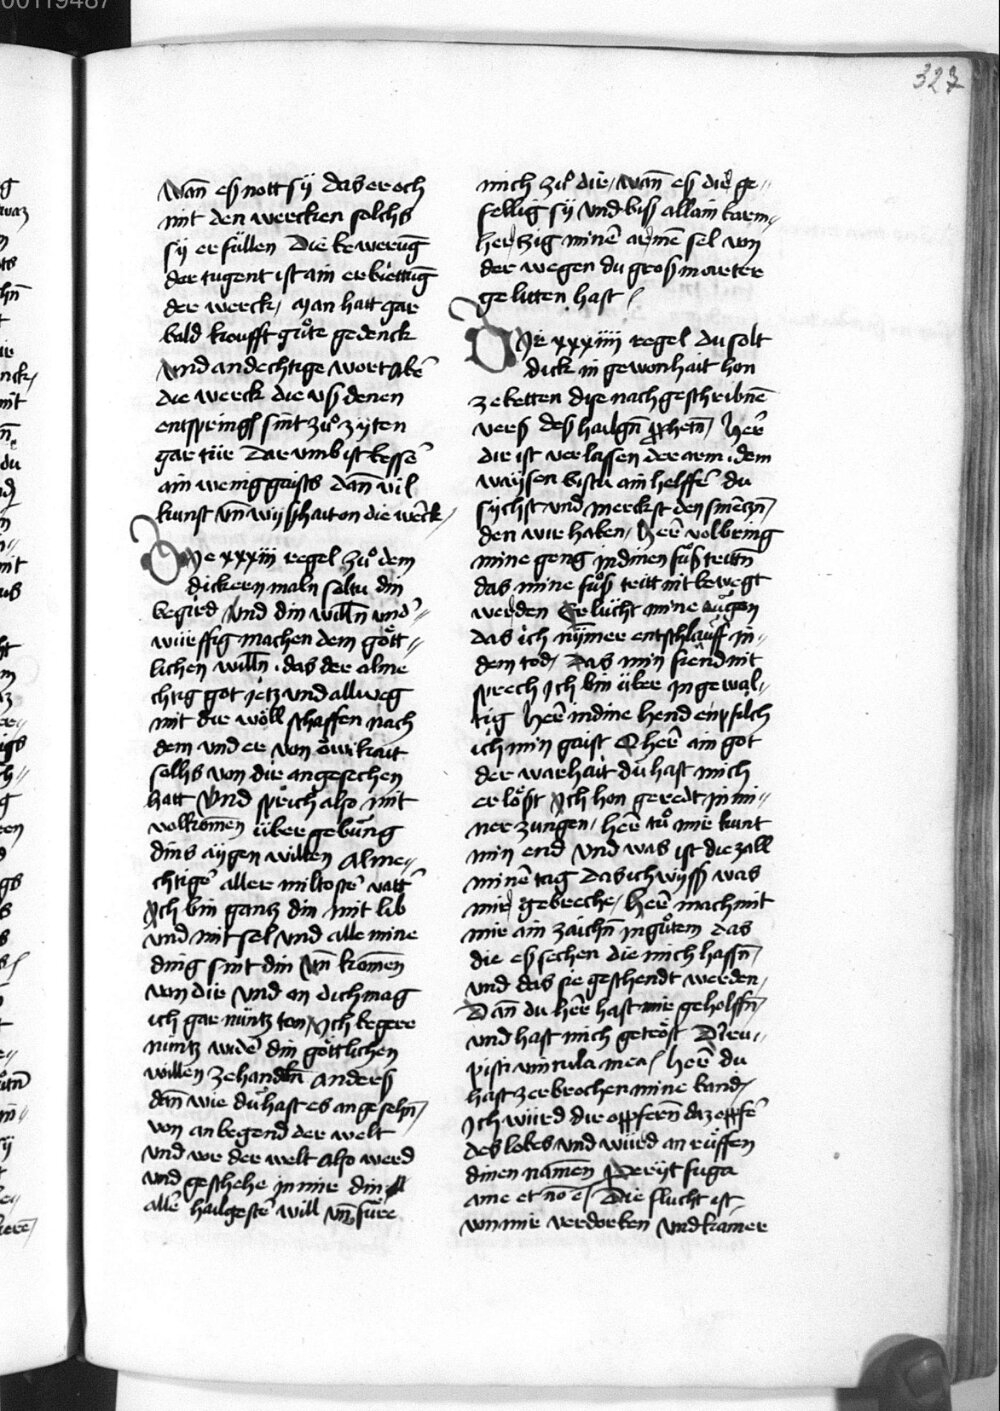 00119487
327
wan̄ es nott sÿ das er och
mit den wercken solchs
sÿ er füllen Die bewerūg
der tugent ist ain erbiettūg
der werck / Man hatt gar
bald koufft gůte gedenck
und andechtige wort aber̄
die werck die uss denen
entspringē sint zů zyten
gar tür Dar umb ist besser̄
ain wenig gaists dan̄ vil
kunst un̄ wÿshait on die werck /
Die xxxiii regel zů dem
dickern maln soltu din
begird und din willn̄ und''
würffig machen dem gött''
lichen willn̄ . das der alme
chtig got ietz und allweg
mit dir wöll schaffen nach
dem und er von öwikait
sollhs von dir angesechen
hatt Und sprich also mit
volkomen̄ über gebung
dins aÿgen willen Alme''
chtiger̄ aller miltoster̄ vatter̄
Ich bin gantz din mit lib
und mit sel und alle mine
ding sint din Un̄ komen̄
von dir und on dich mag
ich gar nüntz ton Ich begere
nüntz wider̄ din göttlichen
willen ze handlen̄ anders
dan̄ wie du hast es angesehn̄ /
von anbegend der welt
und vor der welt Also werd
und geschehe in mir din
aller̄ hailgester̄ will un̄ füre
mich zů dir / wan̄ es dir ge''
fellig sÿ und bis allain barm''
hertzig minē armē sel von
der wegen du gros marter
gelitten hast /
Dir xxxiiii regel Du solt
dick in gewonhait hon
ze betten dise nachgeschribnē
vers des hailgn̄ prophetn̄ / Herr̄
dir ist verlassen der arm . dem
waÿsen bistu ain helffer̄ du
sÿchst und merckst den smertzn̄
den wir haben / Herr̄ volbring
mine geng in dinen fůstrittn̄
das mine fůstritt nit bewegt
werden Erlücht mine augen
das ich nymer entschlauff in''
dem tod / Das min fiend nit
sprech Ich bin über in gewal''
tig Herr̄ in dine hend enpfilch
ich min gaist O herr̄ ain got
der warhait du hast mich
erlöst Ich hon geredt in mi''
ner zungen / herr̄ tů mir kunt
min end Und was ist die zall
minēr tag Das ich wÿss was
mir gebreche / Herr̄ mach mit
mir ain zaichn̄ in gůtem das
die es sechen die mich hassn̄ /
und das sie geschendt werden /
Dan̄ du herr̄ hast mir geholffn̄
und hast mich getröst Diru''
pisti vincula mea / Herr̄ du
hast zerbrochen mine band /
Ich würd dir oppfern̄ daz oppfer̄
des lobes und würd an rüffen
dinen namen̄ Perijt fuga
a me et no ē / Die flucht ist
von mir verdorben und kainer